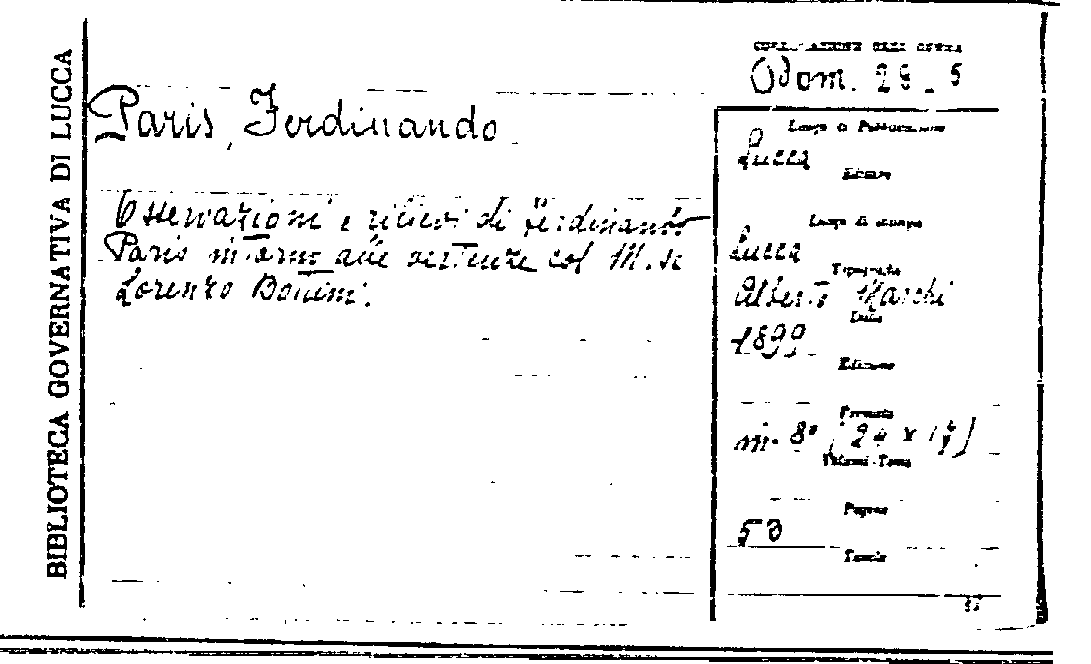 BIBLIOTECA GOVERNATIVA DI LUCCA
COLLOCAZIONE DELL'OPERA
Odom. 29_5
Paris, Ferdinando
Osservazioni e rilievi di Ferdinando
Paris intorno alle vertenze col M.se
Lorenzo Bottini.
Luogo di Pubblicazione
Lucca
Editore
Luogo di stampa
Lucca
Tipografia
Alberto Marchi
Data
1899
Edizione
Formato
in-8° (24 x
Volumi-Tomi
Pagine
Tavole